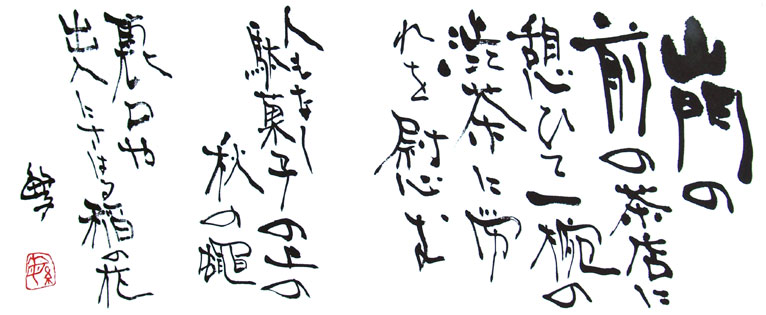 山門の
前の茶店に
憩ひて一椀の
渋茶に労
れを慰む
人もなし
駄菓子の上の
秋の蠅
裏口や
出入にさはる稲の花